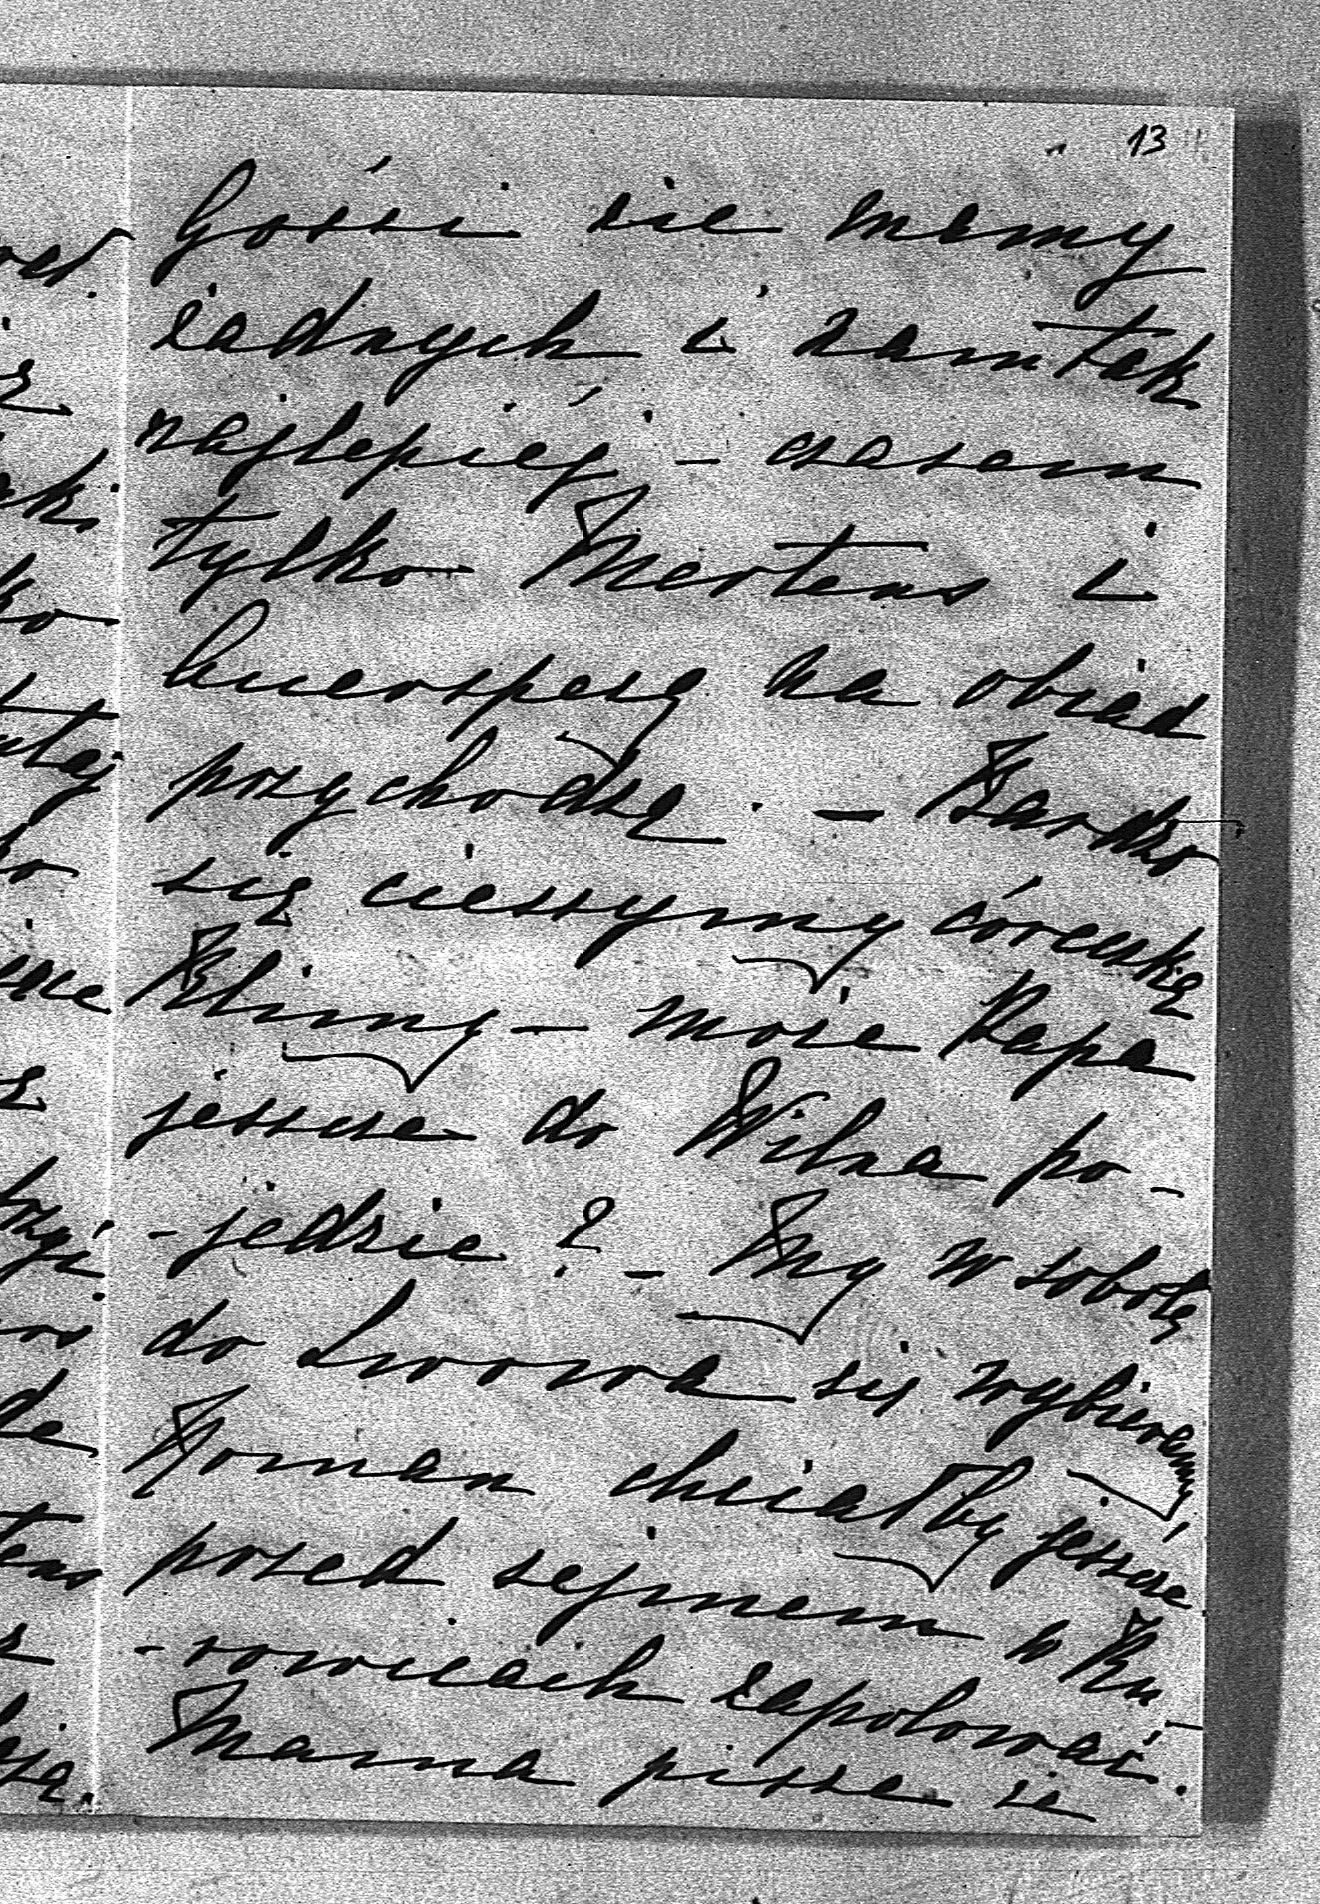 13
Gości nie mamy
żadnych i nam tak
najlepiéj – czasem
tylko Mertens i
Auersperg na obiad
przychodzą. – Bardzo
się cieszymy córeczką
Klimy – może Papa
jeszcze do Wilna po-
-jedzie? – My w sobotę
do Lwowa się wybieramy
Roman chciałby jeszcze
przed sejmem w Ru-
-rowicach zapolować.
Mama pisze że